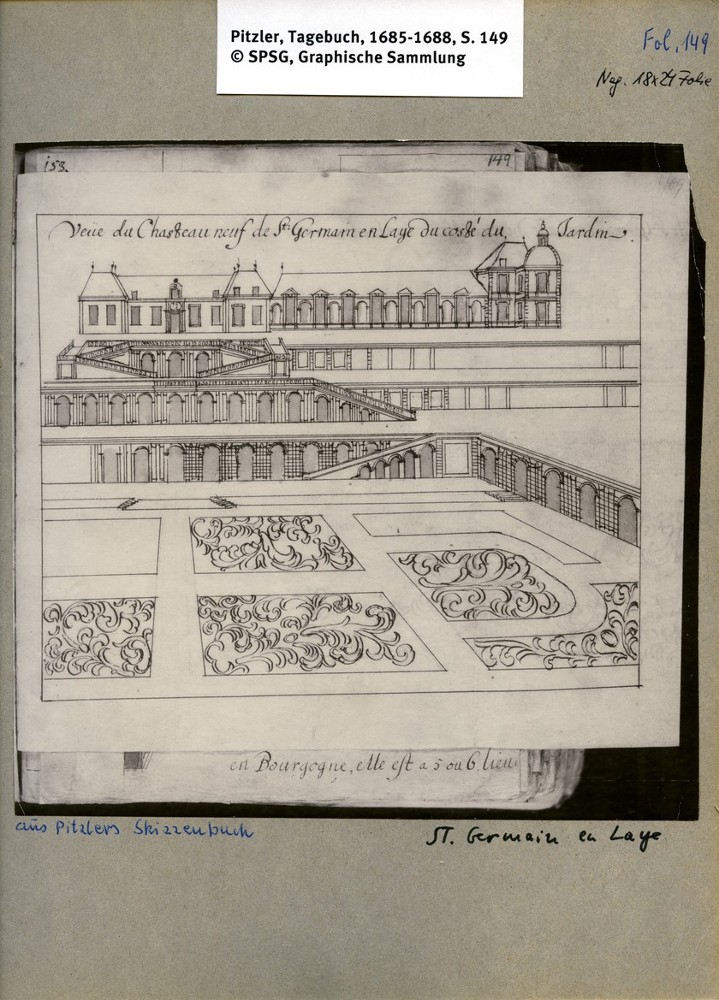 Pitzler, Tagebuch, 1685-1688, S. 149
© SPSG, Graphische Sammlung
Fol. 149
Neg. 18x24 Folie
153.
149
149
Veüe du Chasteau neuf de St. Germain en Laye du costé du Jardin.
en Bourgogne, elle est a 5 ou 6 lieu
aus Pitzlers Skizzenbuch
ST. Germain en Laye